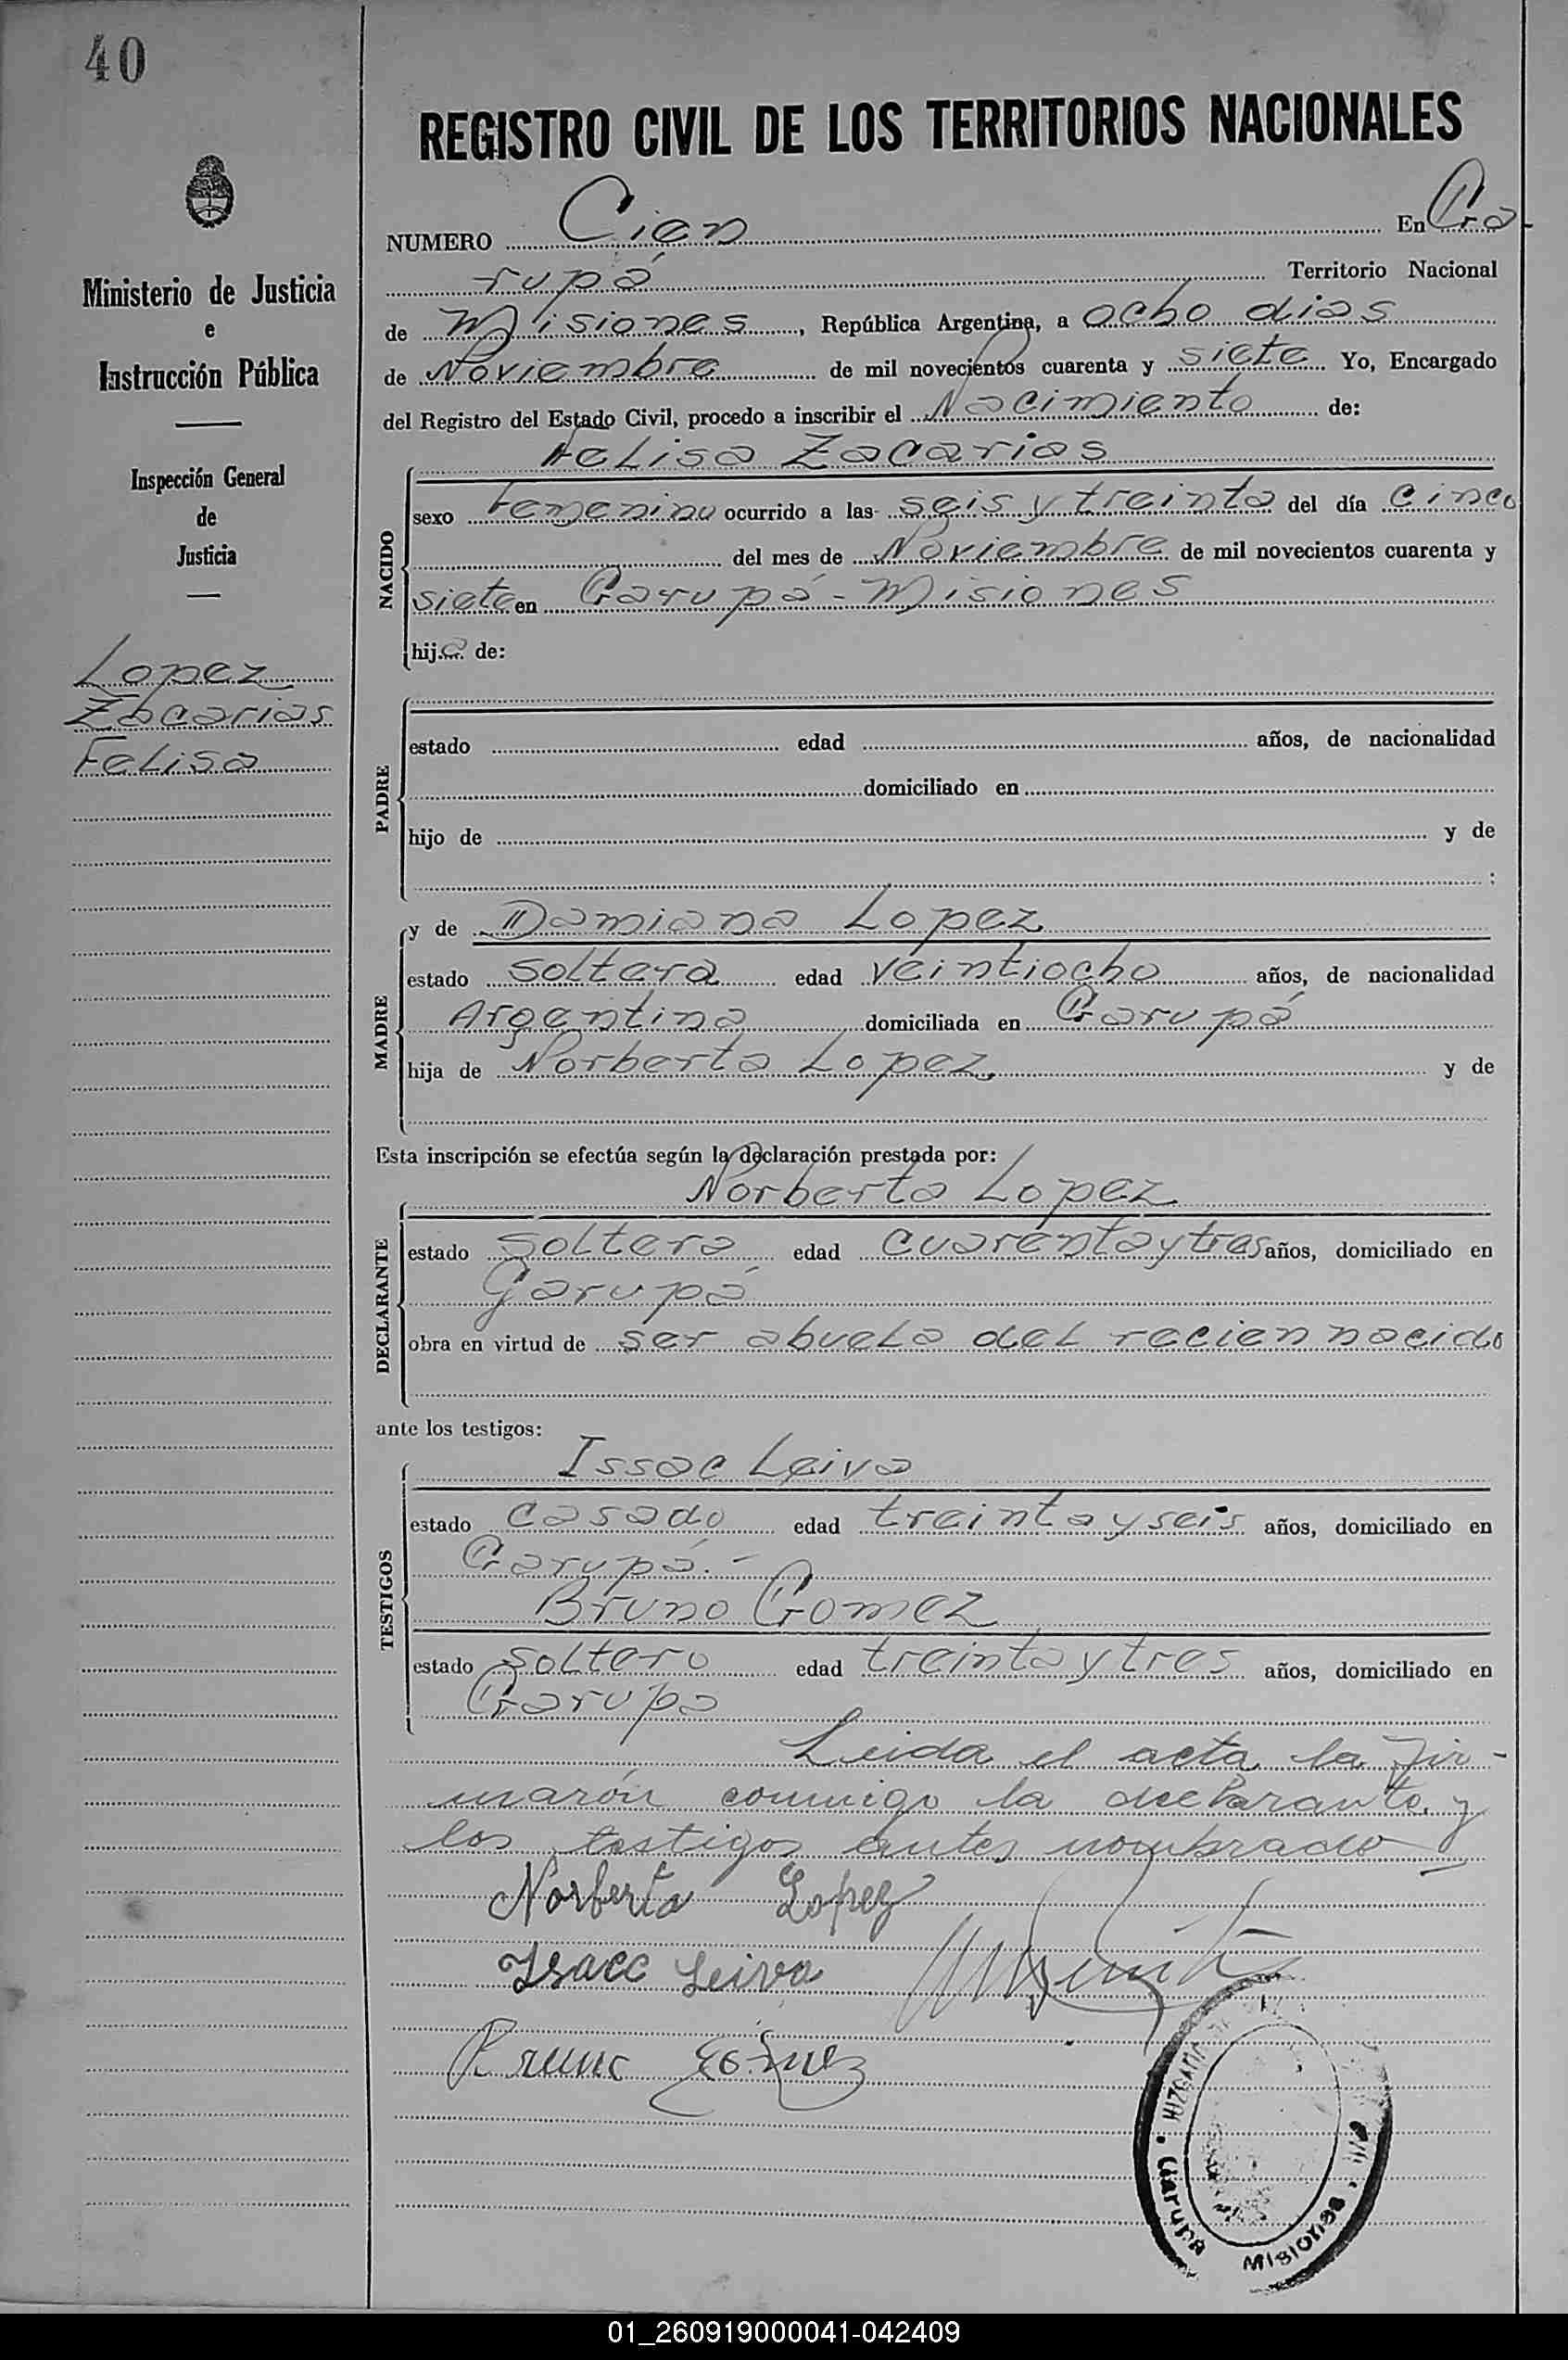 40
REGISTRO CIVIL DE LOS TERRITORIOS NACIONALES
Ministerio de Justicia
e
Instrucción Pública
Inspección General
de
Justicia
Lopez
Zacarias
Felisa
NUMERO Cien En Ga-
rupá Territorio Nacional
de Misiones, República Argentina, a ocho dias
de Noviembre de mil novecientos cuarenta y siete Yo, Encargado
del Registro del Estado Civil, procedo a inscribir el Nacimiento de:
Felisa Zacarias
NACIDO
sexo Femenino ocurrido a las seis y treinta del día cinco
del mes de Noviembre de mil novecientos cuarenta y
siete en Garupá - Misiones
hija de:
PADRE
estado edad años, de nacionalidad
domiciliado en
hijo de y de
;
y de Damiana Lopez
MADRE
estado soltera edad veintiocho años, de nacionalidad
Argentina domiciliada en Garupá
hija de Norberta Lopez y de
Esta inscripción se efectúa según la declaración prestada por:
Norberta Lopez
DECLARANTE
estado soltera edad cuarenta y tres años, domiciliado en
Garupá
obra en virtud de ser abuela del recien nacido
ante los testigos:
TESTIGOS
Issac Leiva
estado casado edad treinta y seis años, domiciliado en
Garupá.-
Bruno Gomez
estado soltero edad treinta y tres años, domiciliado en
Garupa
Leida el acta, la fir-
marón conmigo la declarante y
los testigos antes nombrado
Norberta Lopez
Isacc Leiva
Bruno Gómez
Garupá
Misiones
01_260919000041-042409